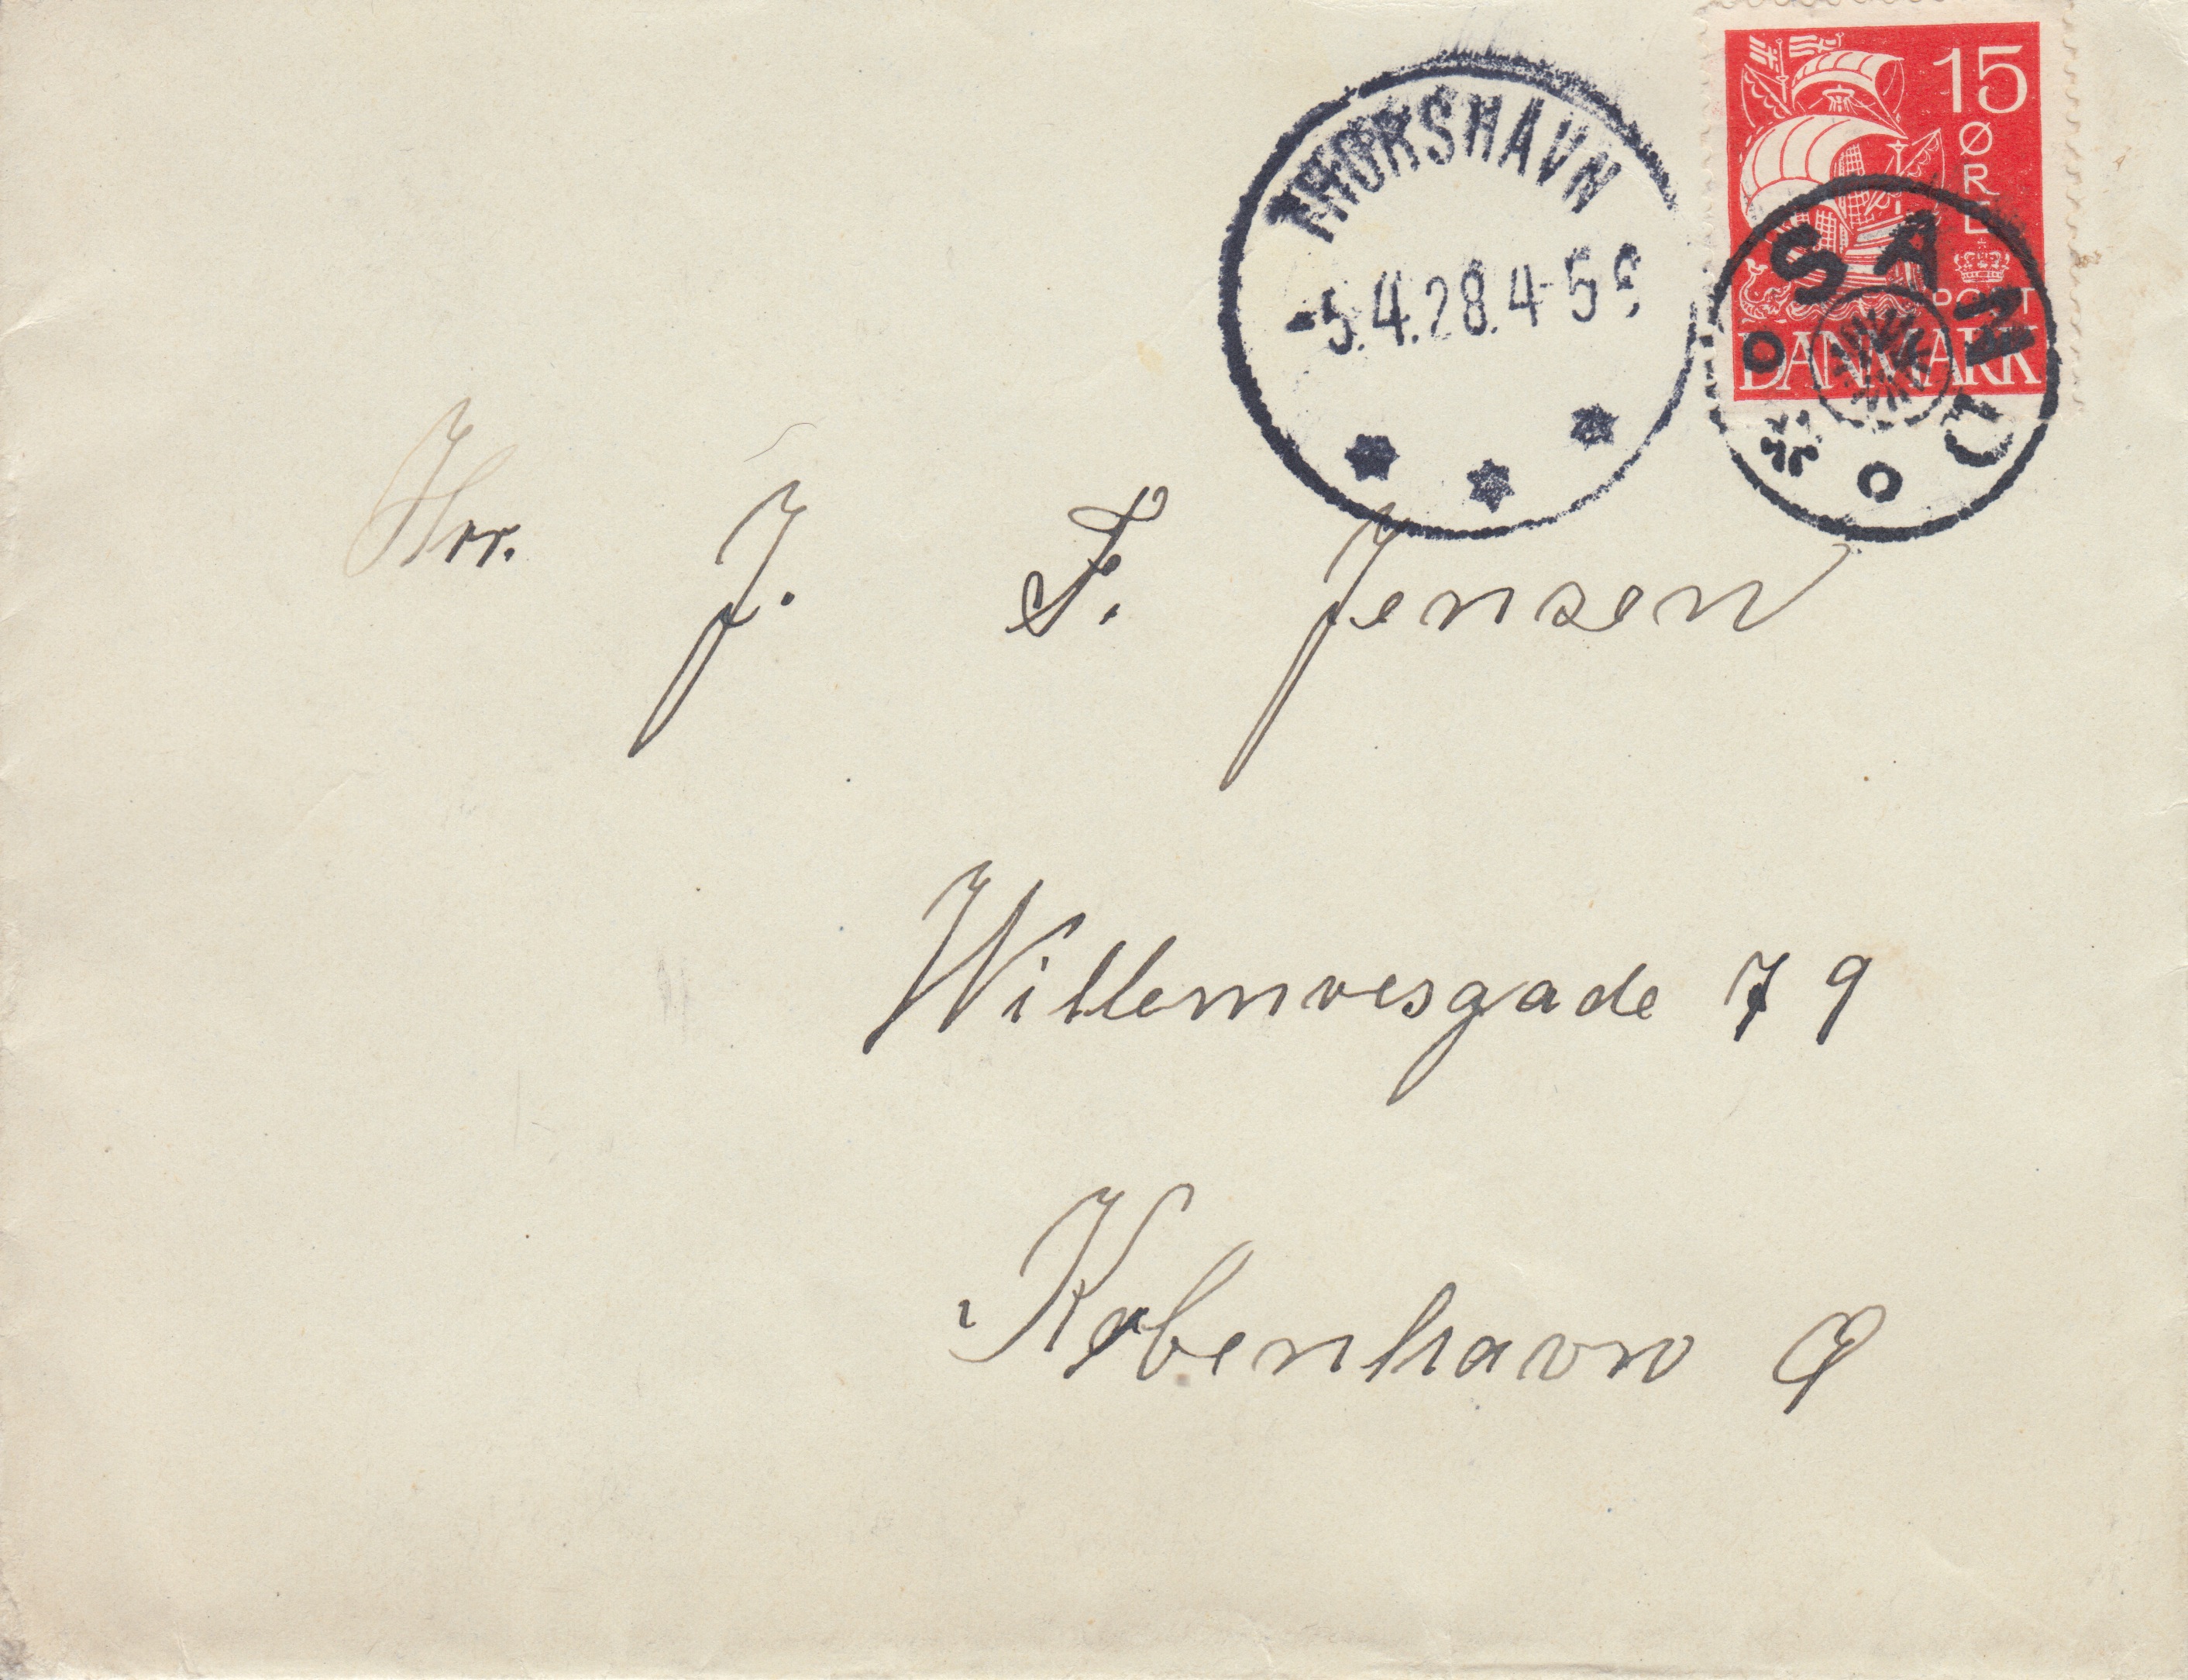 THORSHAVN
-5.4.28.4-5 S
15
ØRE
POST
DANMARK
SAND
Hrr. J. F. Jensen
Willemoesgade 79
København Ø